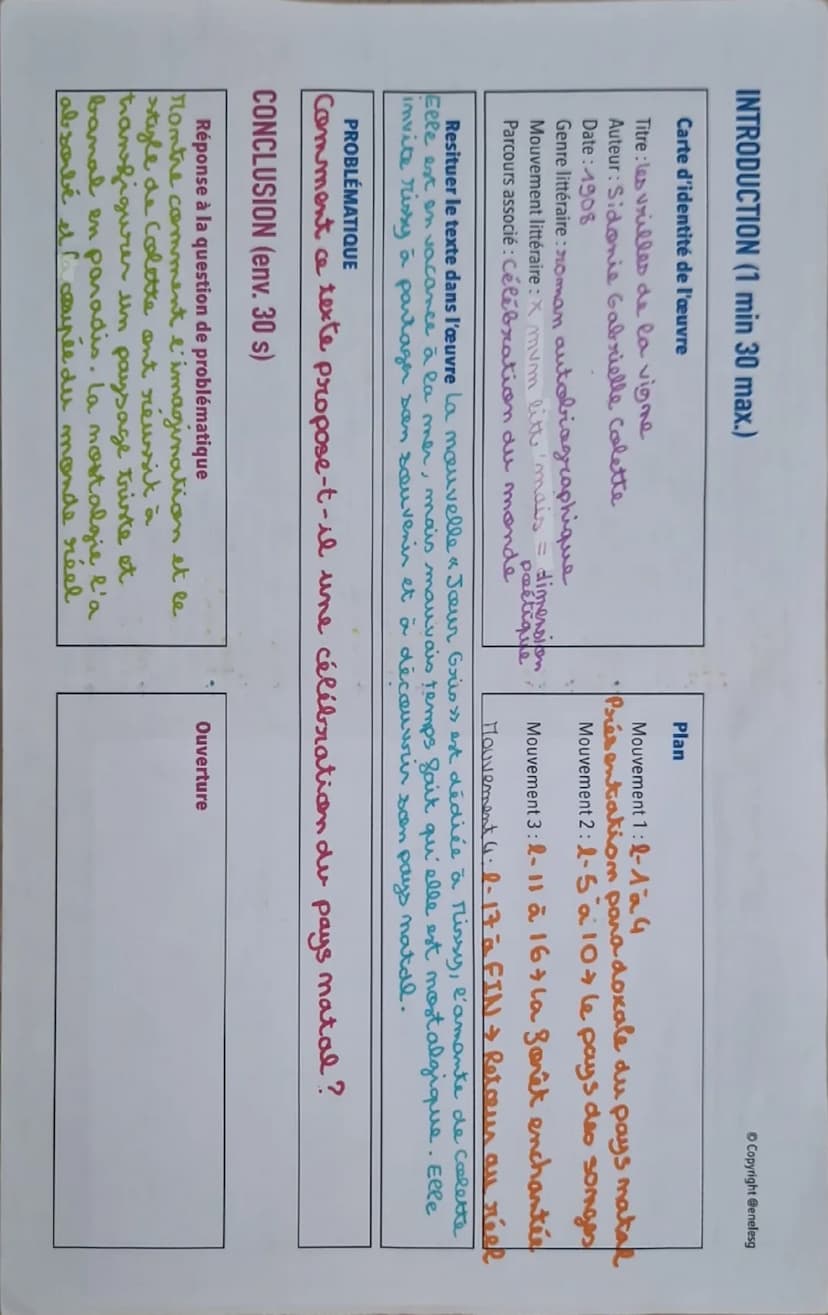 INTRODUCTION (1 min 30 max.)
© Copyright @enelesg
Carte d'identité de l'œuvre
Titre : les vrilles de la vigne
Auteur : Sidonie Gabrielle Colette
Date : 1908
Genre littéraire : roman autobiographique
Mouvement littéraire : X mvm litt mais = dimension
poétique
Parcours associé : célébration du monde
Plan
Mouvement 1 : l-1 à 4
Présentation paradoxale du pays natal
Mouvement 2 : l-5 à 10 → le pays des songes
Mouvement 3 : l-11 à 16 → La forêt enchantée
Mouvement 4 : l-17 à FIN → Retour au réel
Resituer le texte dans l'œuvre La nouvelle « Jour Gris » est dédiée à Missy, l'amante de Colette
Elle est en vacance à la mer, mais mauvais temps fait qu'elle est nostalgique. Elle
invite Missy à partager son souvenir et à découvrir son pays natal.
PROBLÉMATIQUE
Comment ce texte propose-t-il une célébration du pays natal ?
CONCLUSION (env. 30 s)
Réponse à la question de problématique
Montre comment l'imagination et le
style de Colette ont réussit à
transfigurer un paysage triste et
banal en paradis. La nostalgie l'a
absorbé et l'a coupée du monde réel
Ouverture